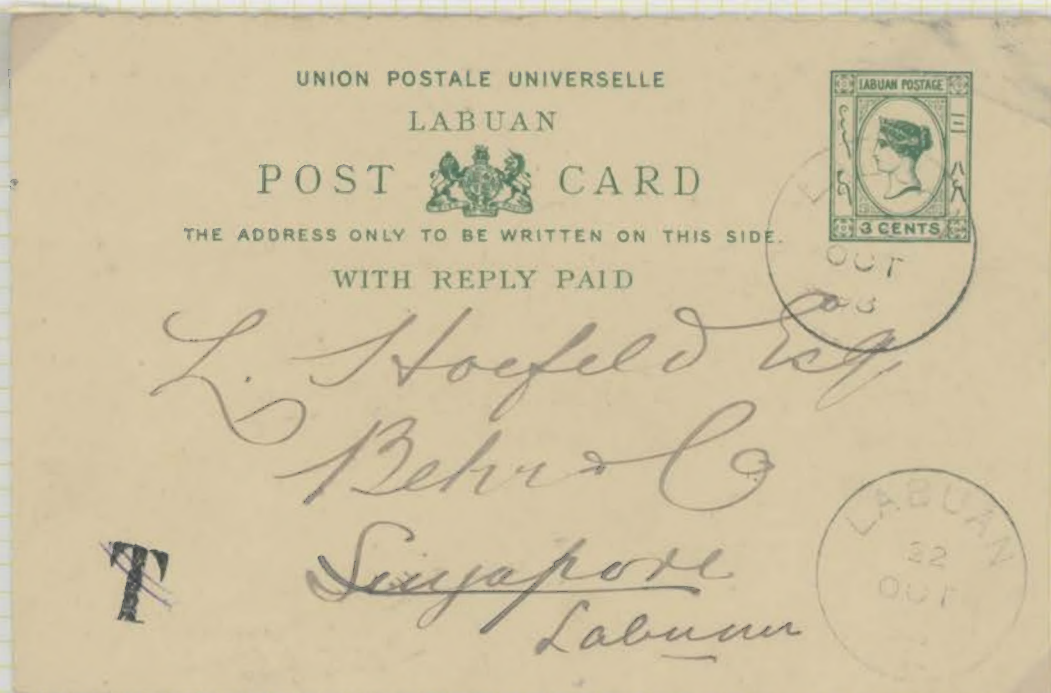 UNION POSTALE UNIVERSELLE
LABUAN
POST CARD
THE ADDRESS ONLY TO BE WRITTEN ON THIS SIDE.
WITH REPLY PAID
LABUAN POSTAGE
3 CENTS
OCT
L. Hoefeld Esq
Behr & Co
Singapore
Labuan
T
LABUAN
22
OCT